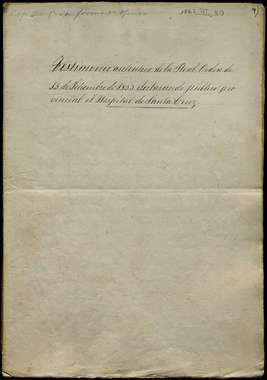 1862 III 30
Testimonio autentico de la Real Orden de
15 de Diciembre de 1853 declarando público pro
vincial el Hospital de Santa Cruz